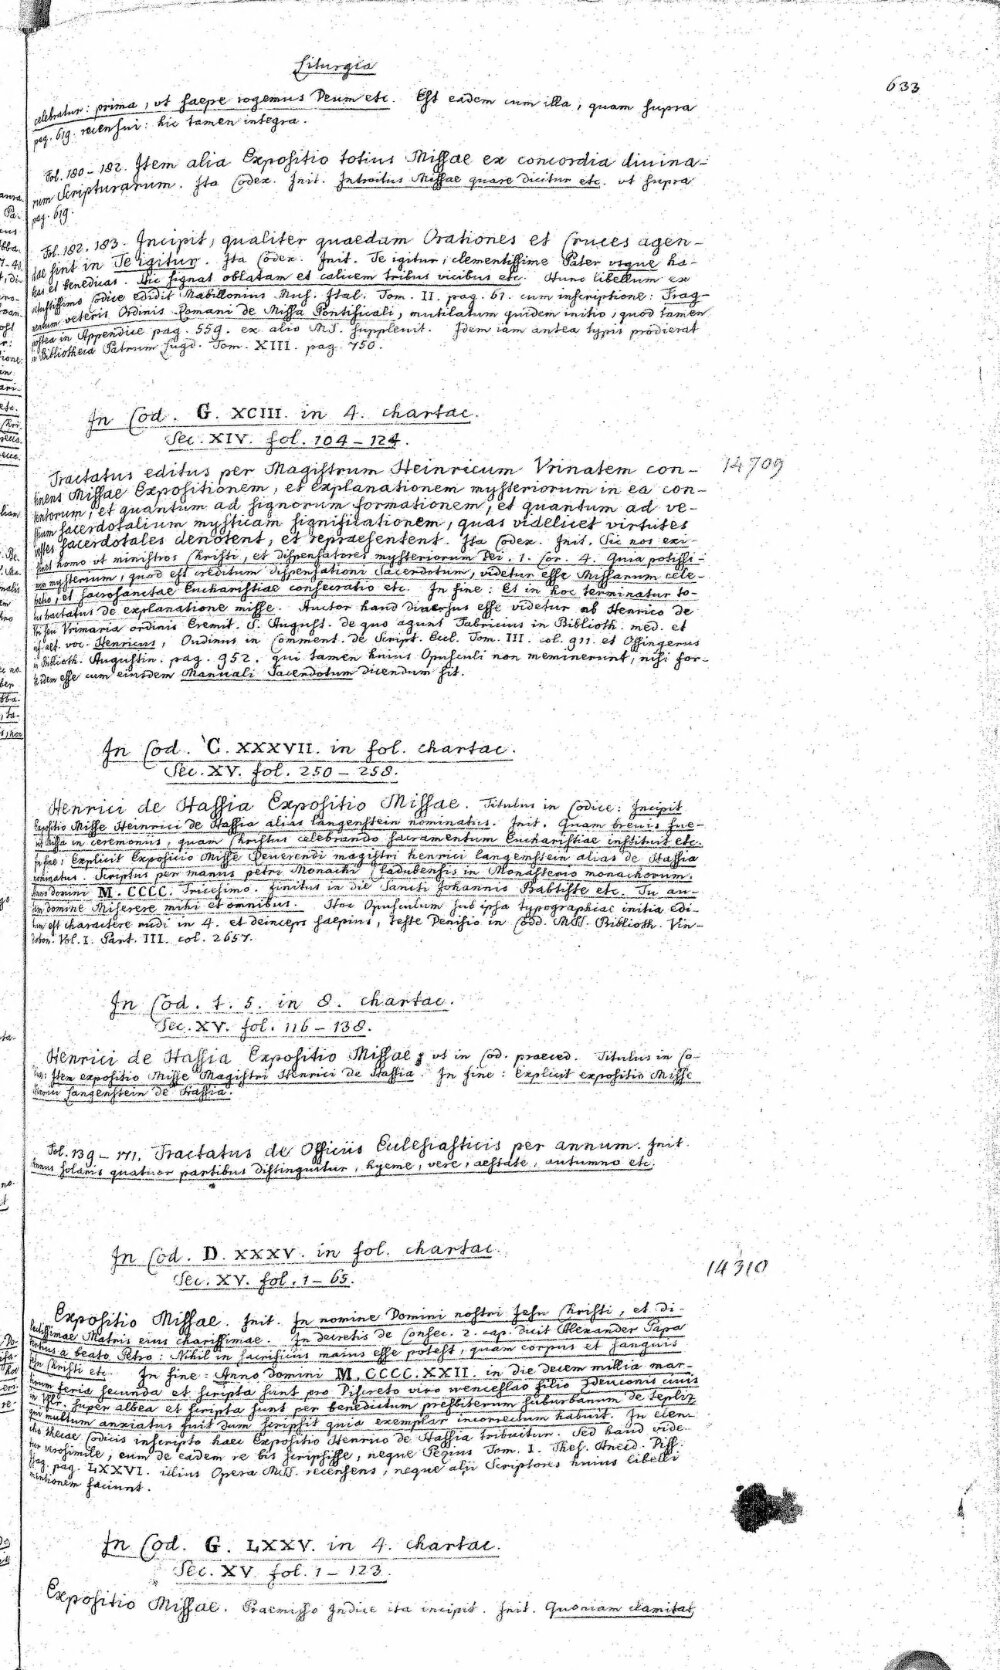 Liturgia
633
celebratur: prima, ut saepe rogemus Deum etc. Est eadem cum illa, quam supra
pag. 619. recensui: hic tamen integra.
Fol. 180-182. Item alia Expositio totius Missae ex concordia divina-
rum Scripturarum. Ita Codex. Init. Introitus Missae quare dicitur etc. ut supra
pag. 619.
Fol. 182, 183. Incipit, qualiter quaedam Orationes et Cruces agen-
dae sint in Te igitur. Ita Codex. Init. Te igitur, clementissime Pater usque ha-
beas et benedicas. Hic signat oblatam et calicem tribus vicibus etc. Hunc libellum ex
vetustissimo Codice edidit Mabillonius Mus. Ital. Tom. II. pag. 61. cum inscriptione: Frag-
mentum veteris Ordinis Romani de Missa Pontificali, mutilatum quidem initio, quod tamen
postea in Appendice pag. 559. ex alio MS. supplevit. Idem iam antea typis prodierat
in Bibliotheca Patrum Lugd. Tom. XIII. pag. 750.
In Cod. G. XCIII. in 4. chartac.
Sec. XIV. fol. 104-124.
14709
Tractatus editus per Magistrum Heinricum Vrinatem con-
tinens Missae Expositionem, et explanationem mysteriorum in ea con-
tentorum, et quantum ad signorum formationem, et quantum ad ve-
stium sacerdotalium mysticam significationem, quas videlicet virtutes
vestes sacerdotales denotent, et repraesentent. Ita Codex. Init. Sic nos exi-
stimet homo ut ministros Christi, et dispensatores mysteriorum Dei. 1. Cor. 4. Quia potissi-
mum mysterium, quod est creditum dispensationi Sacerdotum, videtur esse Missarum cele-
bratio, et sacrosanctae Eucharistiae consecratio etc. In fine: Et in hoc terminatur to-
tus tractatus de explanatione misse. Auctor haud diversus esse videtur ab Henrico de
Vrimaria ordinis Eremit. S. August. de quo agunt Fabricius in Biblioth. med. et
inf. aet. voc. Henricus, Oudinus in Comment. de Script. Eccl. Tom. III. col. 911. et Ossingerus
in Biblioth. Augustin. pag. 952. qui tamen huius Opusculi non meminerunt, nisi for-
te idem esse cum eiusdem Manuali Sacerdotum dicendum sit.
In Cod. C. XXXVII. in fol. chartac.
Sec. XV. fol. 250-258.
Henrici de Hassia Expositio Missae. Titulus in Codice: Incipit
Expositio Misse Heinrici de Hassia alias Langenstein nominatus. Init. Quam brevis fue-
rit Missa in ceremoniis, quam Christus celebrando sacramentum Eucharistiae instituit etc.
In fine: Explicit Exposicio Misse Reverendi magistri henrici langemstein alias de Hassia
nominatus. Scriptus per manus petri Monachi Cladubensis in Monasterio monachorum.
Anno domini M. CCCC. Tricesimo. finitus in die Sancti Johannis Babtiste etc. Tu au-
tem domine Miserere mihi et omnibus. Hoc Opusculum sub ipsa typographiae initia edi-
tum est charactere rudi in 4. et deinceps saepius, teste Denisio in Codd. MSS. Biblioth. Vin-
dobon. Vol. I. Part. III. col. 2657.
In Cod. t. 5. in 8. chartac.
Sec. XV. fol. 116-138.
Henrici de Hassia Expositio Missae, ut in Cod. praeced. Titulus in Co-
dice: Item expositio Misse Magistri Henrici de Hassia. In fine: Explicit expositio Misse
Henrici Langenstein de Hassia.
Fol. 139-171. Tractatus de Officiis Ecclesiasticis per annum. Init.
Annus solaris quatuor partibus distinguitur, hyeme, vere, aestate, autumno etc.
In Cod. D. XXXV. in fol. chartac.
Sec. XV. fol. 1-65.
14310
Expositio Missae. Init. In nomine Domini nostri Jesu Christi, et di-
lectissimae Matris eius charissimae. In decretis de Consec. 2. cap. dicit Alexander Papa
a beato Petro: Nihil in sacrificiis maius esse potest, quam corpus et sanguis
Christi etc. In fine: Anno domini M. CCCC. XXII. in die decem millia mar-
tirum feria secunda et scripta sunt pro Discreto viro wenceslao filio
super albea et scripta sunt per benedictum presbiterum suburbanum de teplız
qui multum anxiatus fuit dum scripsit quia exemplar incorrectum habuit. In
thecae Codicis inscripto haec Expositio Henrico de Hassia tribuitur. Sed haud vide-
tur verosimile, eum de eadem re bis scripsisse, neque Pezius Tom. I. Thes. Anecd. Diss.
Isag. pag. LXXVI. illius Opera MSS. recensens, neque alii Scriptores huius libelli
mentionem faciunt.
In Cod. G. LXXV. in 4. chartac.
Sec. XV. fol. 1-123.
Expositio Missae. Praemisso Indice ita incipit. Init. Quoniam clamitat